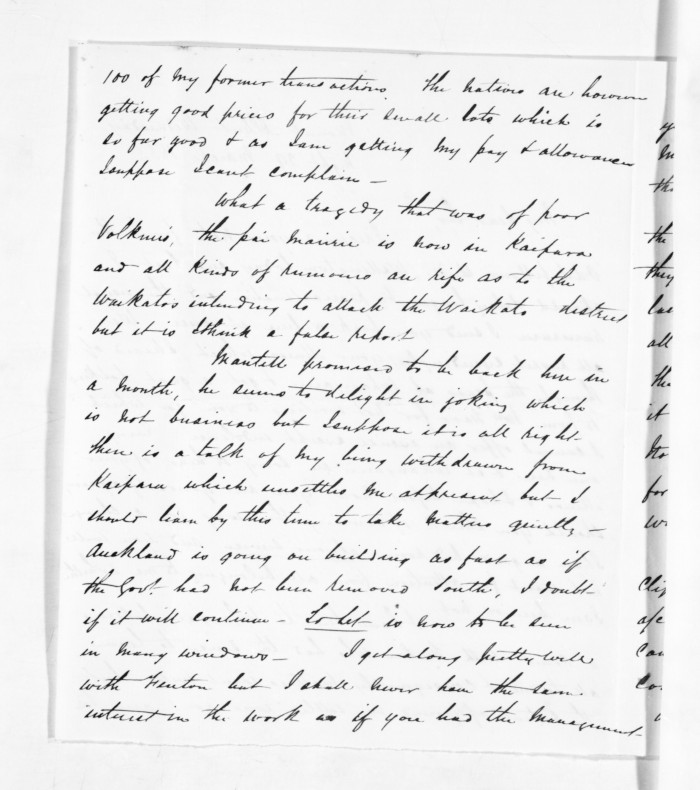 100 of my former transactions. The natives are however
getting good prices for their small lots which is
so far good & as I am getting my pay & allowances
I suppose I cant complain —
What a tragedy that was of poor
Volkner's, the pai marire is now in Kaipara
and all kinds of rumours are rife as to the
Waikatos intending to attack the Waikato district
but it is I think a false report
Mantell promised to be back here in
a month, he seems to delight in joking which
is not business but I suppose it is all right —
there is a talk of my being withdrawn from
Kaipara which unsettles me at present but I
should learn by this time to take matters quietly —
Auckland is going on building as fast as if
the Govt. had not been removed South, I doubt
if it will continue — To Let is now to be seen
in many windows — I get along pretty well
with Fenton but I shall never have the same
interest in the work as if you had the management